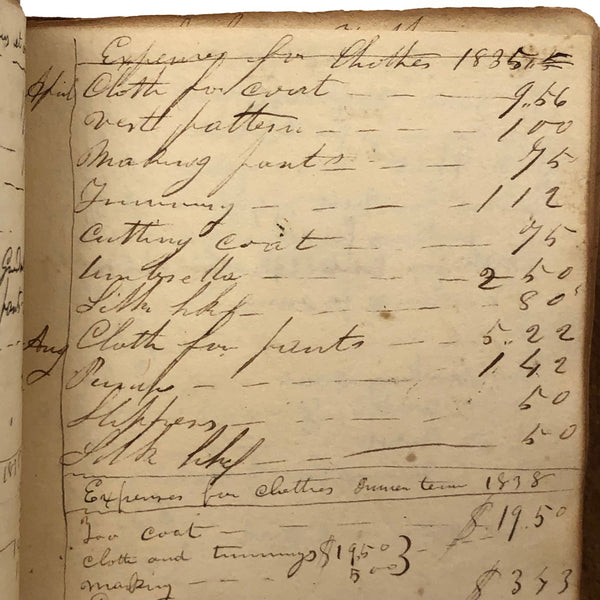 Expenses for Clothes 1835
April Cloth for coat — — — 9.56
Vest pattern — — — 1 00
Making pants — — — 75
Trimming — — — 1 12
Cutting coat — — — 75
Umbrella — — — 2 50
Silk hkf — — — 80
Aug Cloth for pants — — — 5.22
— — — 1.42
Slippers — — — 50
Silk hkf — — — 50
Expenses for clothes term 1838
coat — — — $19.50
cloth and trimmings $19.50 }
making — — — 5 00 }
$ 3 43